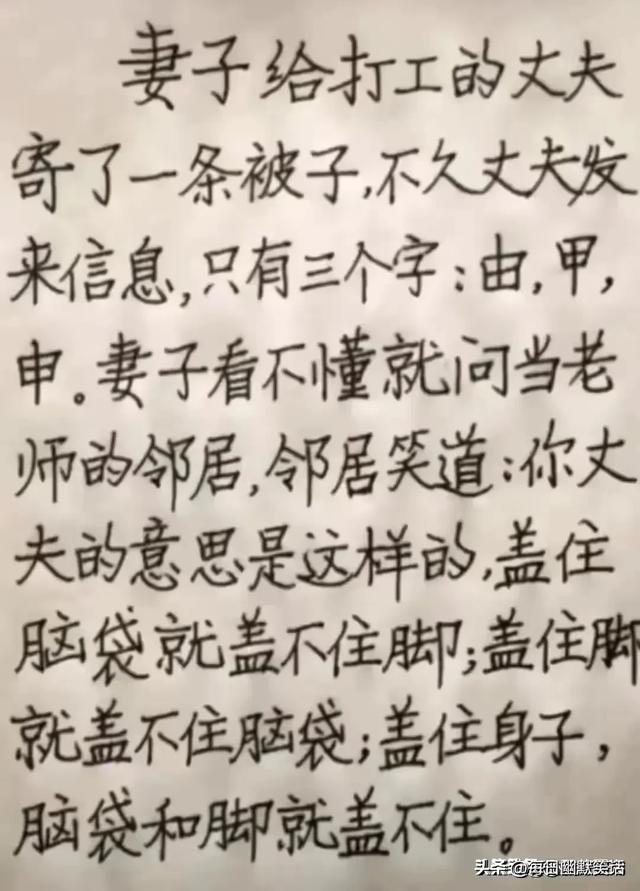 妻子给打工的丈夫
寄了一条被子,不久丈夫发
来信息,只有三个字:由,甲,
申。妻子看不懂就问当老
师的邻居,邻居笑道:你丈
夫的意思是这样的,盖住
脑袋就盖不住脚;盖住脚
就盖不住脑袋;盖住身子,
脑袋和脚就盖不住。
头条 @每日幽默笑话